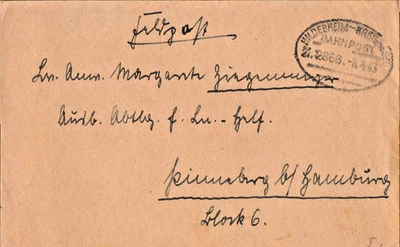 Feldpost
HILDESHEIM-
BAHNPOST
Z.2868 -8.4.43
Ln. Anw. Margarete Ziegenmeyer
Ausb. Abtlg. f. Ln.-Helf.
Pinneberg b/Hamburg
Block 6.